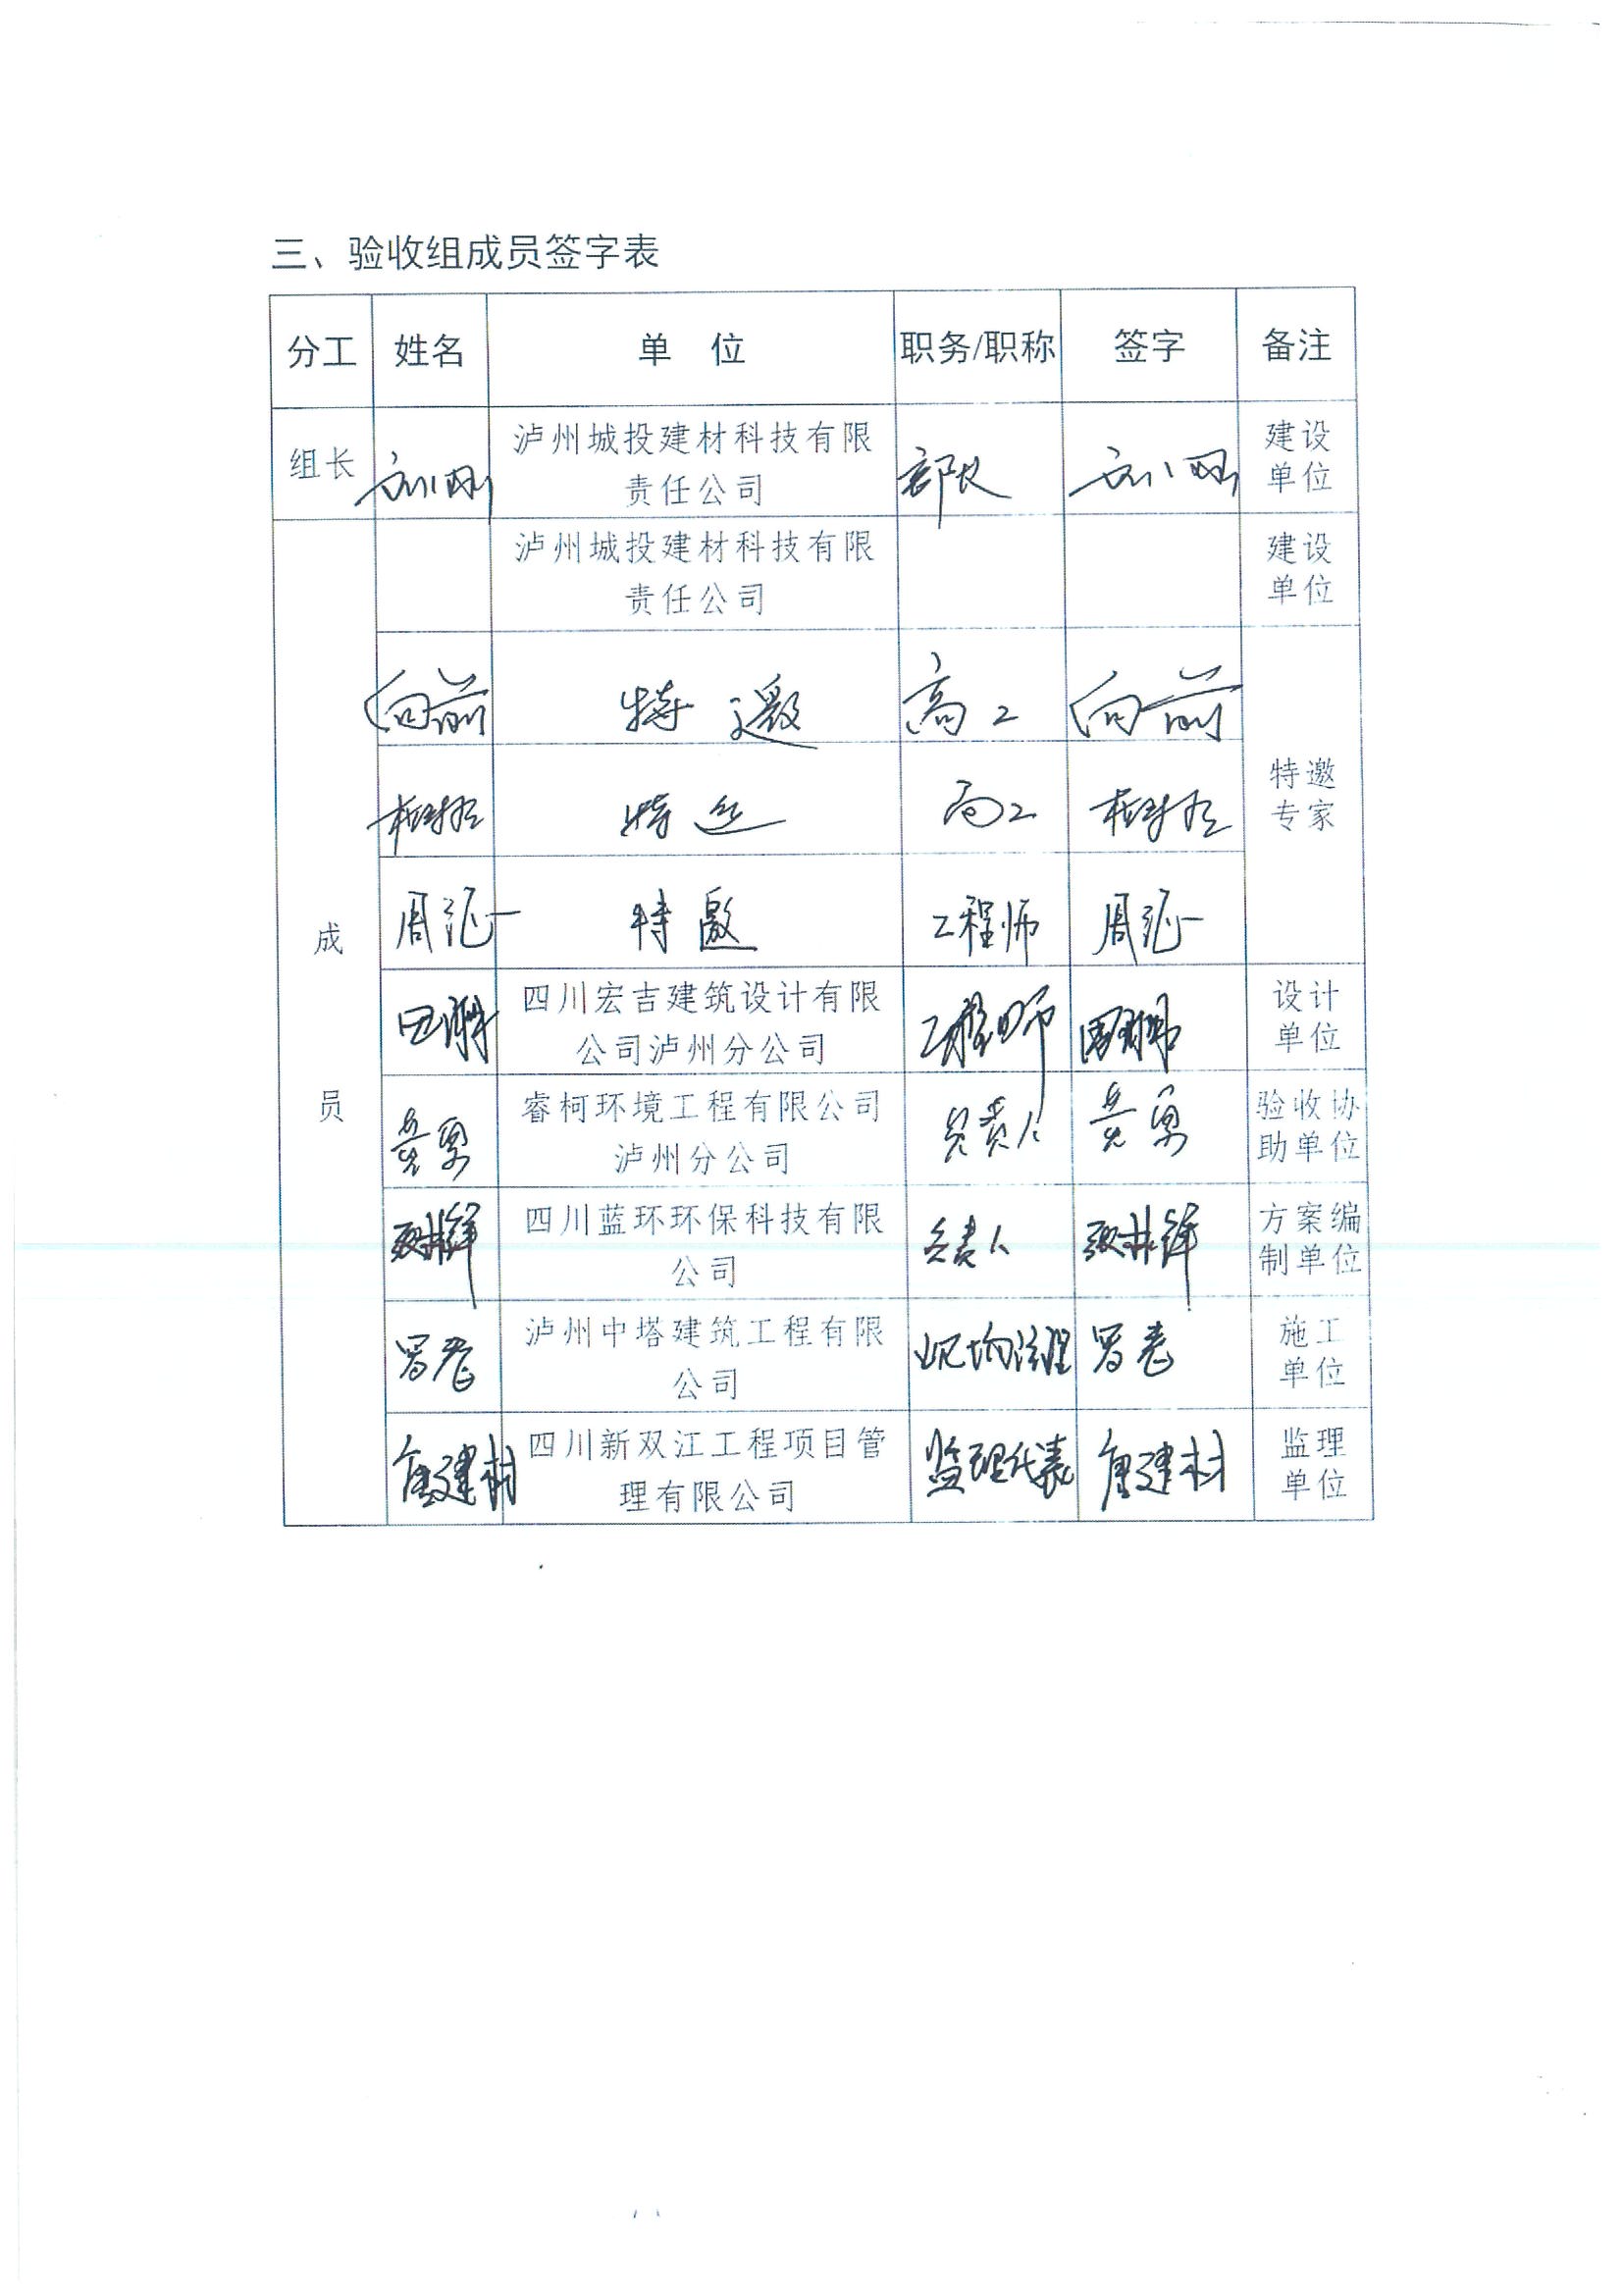 三、验收组成员签字表
分工 姓名 单 位 职务/职称 签字 备注
组长 刘刚 泸州城投建材科技有限 部长 刘刚 建设
责任公司 单位
泸州城投建材科技有限 建设
责任公司 单位
向前 特邀 高工 向前
特邀 高工 特邀
专家
周证一 特邀 工程师 周证一
成
四川宏吉建筑设计有限 工程师 设计
公司泸州分公司 单位
员 黄勇 睿柯环境工程有限公司 负责人 黄勇 验收协
泸州分公司 助单位
四川蓝环环保科技有限 负责人 方案编
公司 制单位
泸州中塔建筑工程有限 施工
公司 单位
唐建材 四川新双江工程项目管 监理代表 唐建材 监理
理有限公司 单位